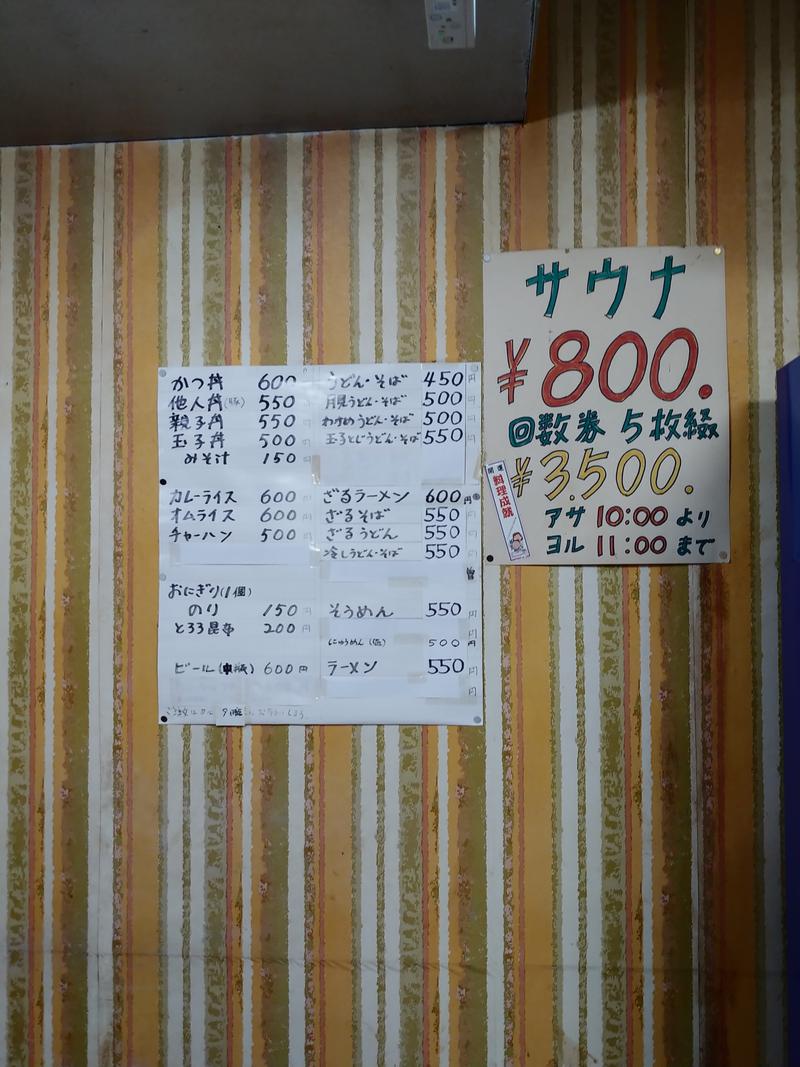 かつ丼 600
他人丼(豚) 550
親子丼 550
玉子丼 500
みそ汁 150
カレーライス 600
オムライス 600
チャーハン 500
おにぎり(1個)
のり 150
とろろ昆布 200
ビール(中瓶) 600円
うどん・そば 450
月見うどん・そば 500
わかめうどん・そば 500
玉子とじうどん・そば 550
ざるラーメン 600円
ざるそば 550
ざるうどん 550
冷しうどん・そば 550
そうめん 550
にゅうめん 500円
ラーメン 550
サウナ
¥800.
回数券 5枚綴
¥3.500.
アサ 10:00 より
ヨル 11:00 まで
開運
料理成就